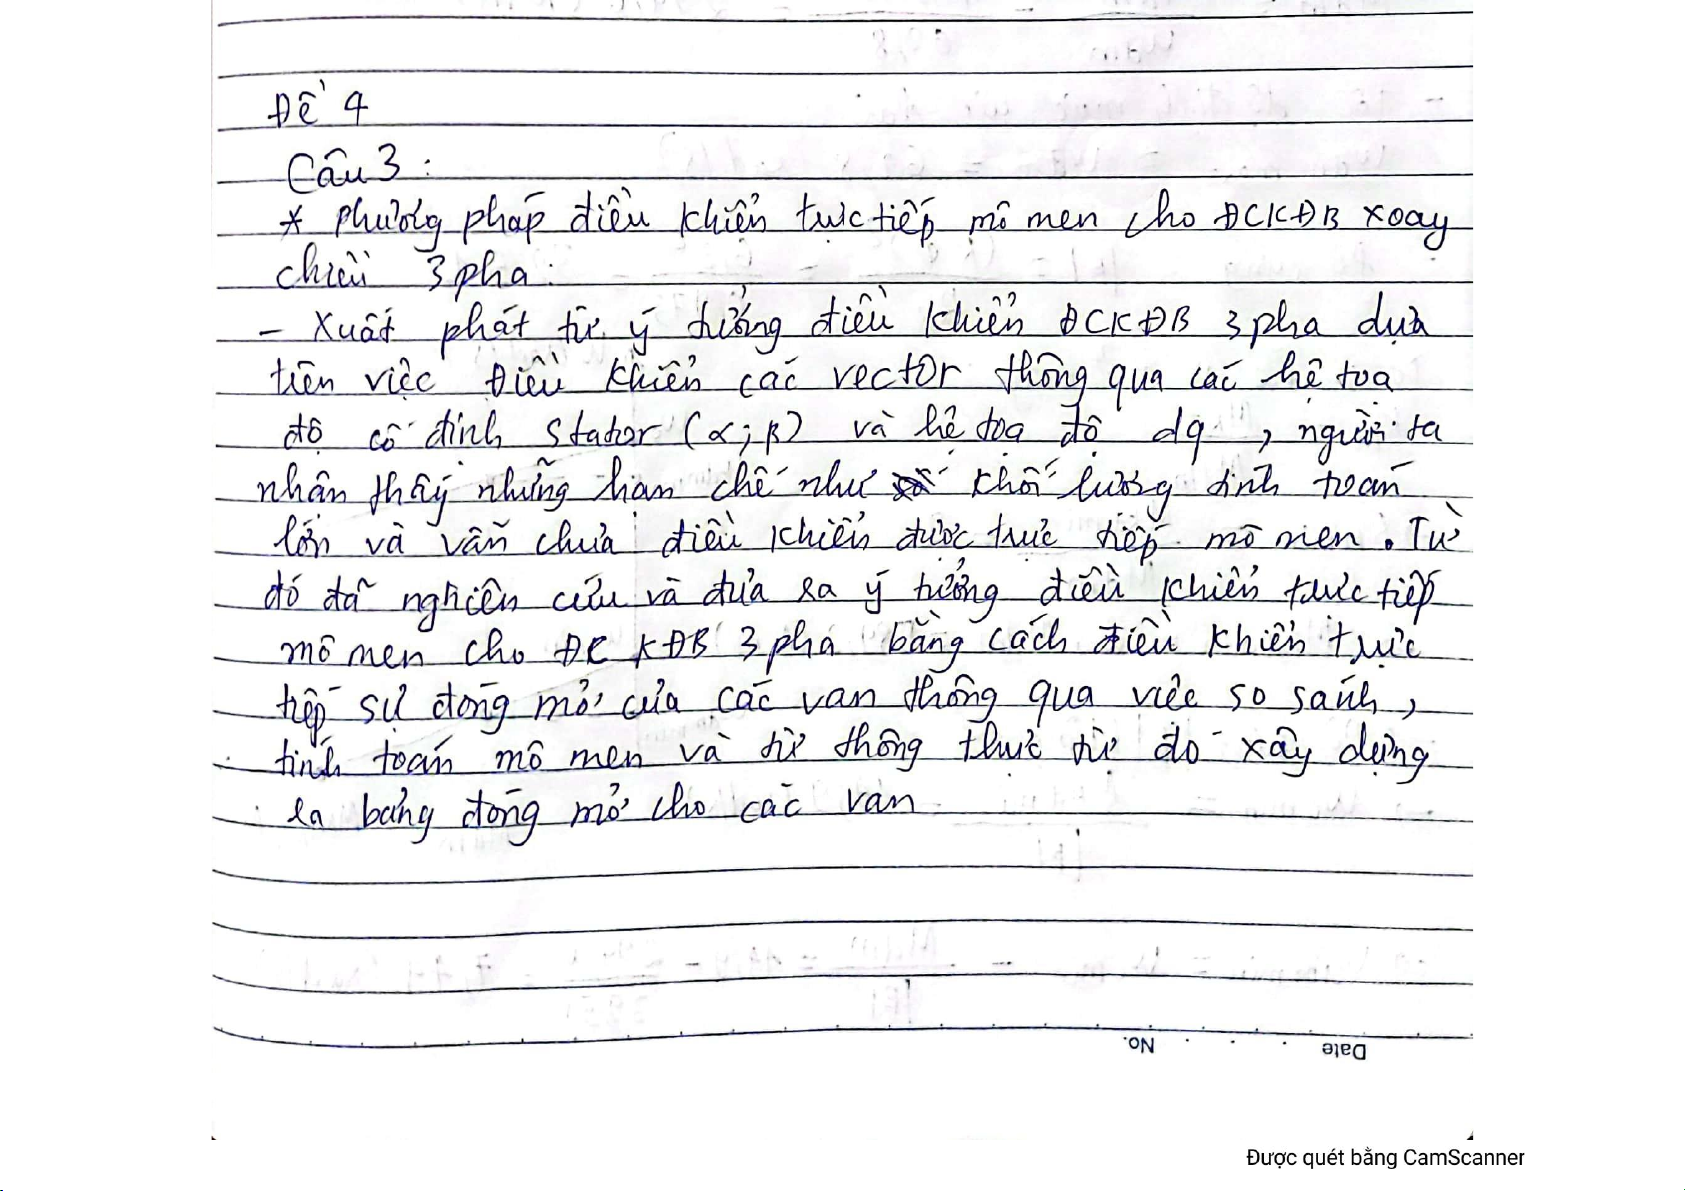 Đề 4
Câu 3 :
* Phương pháp điều khiển trực tiếp mô men cho ĐCKĐB xoay
chiều 3 pha:
- Xuất phát từ ý tưởng điều khiển ĐCKĐB 3 pha dựa
trên việc Điều khiển các vector thông qua các hệ toạ
độ cố định stator (α ; β) và hệ toạ độ dq , người ta
nhận thấy những hạn chế như khối lượng tính toán
lớn và vẫn chưa điều khiển được trực tiếp mô men. Từ
đó đã nghiên cứu và đưa ra ý tưởng điều khiển trực tiếp
mô men cho ĐC KĐB 3 pha bằng cách điều khiển trực
tiếp sự đóng mở của các van thông qua việc so sánh,
tính toán mô men và từ thông thực từ đó xây dựng
ra bảng đóng mở cho các van
No.
Date
Được quét bằng CamScanner